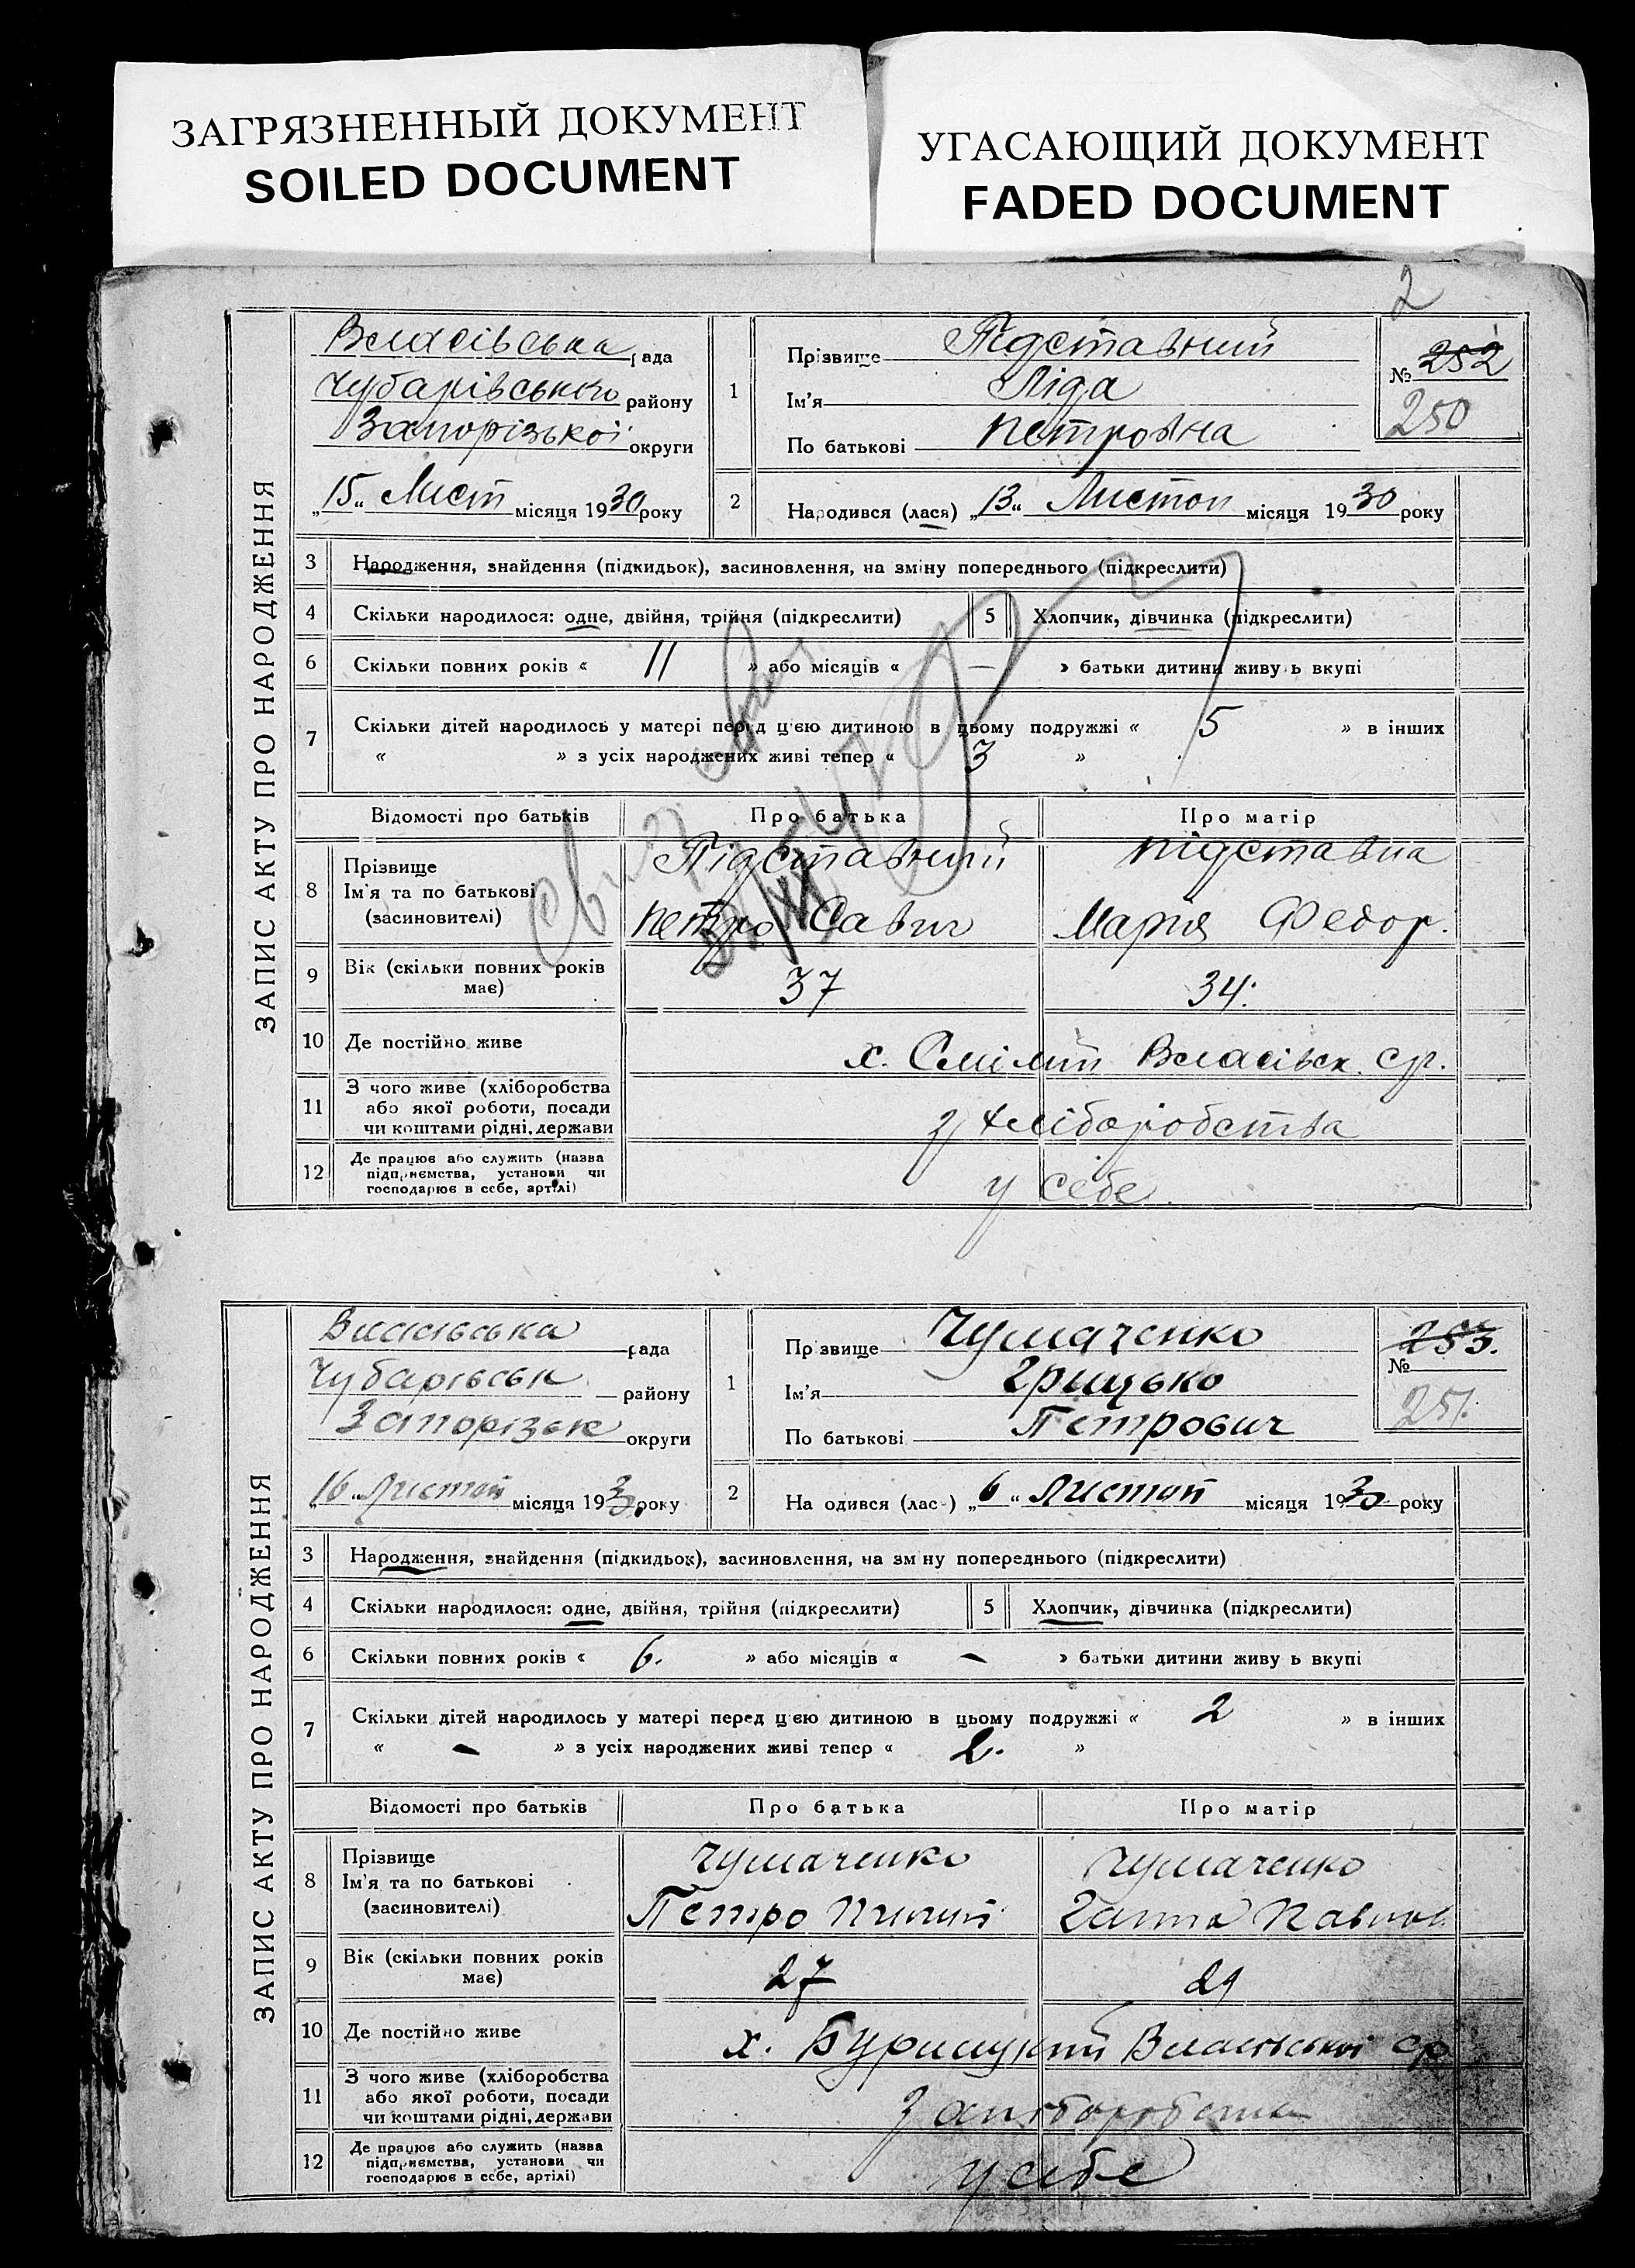 ЗАГРЯЗНЕННЫЙ ДОКУМЕНТ
SOILED DOCUMENT
УГАСАЮЩИЙ ДОКУМЕНТ
FADED DOCUMENT
2
ЗАПИС АКТУ ПРО НАРОДЖЕННЯ
Власівська рада
Чубарівського району
Запорізької округи
„15" Лист місяця 1930 року
1
Прізвище Підставний
Ім'я Ліда
По батькові Петровна
№ 252
250
2 Народився (лася) „13" Листоп місяця 1930 року
3 Народження, знайдення (підкидьок), засиновлення, на зміну попереднього (підкреслити)
4 Скільки народилося: одне, двійня, трійня (підкреслити) 5 Хлопчик, дівчинка (підкреслити)
6 Скільки повних років « 11 » або місяців « — » батьки дитини живу ь вкупі
7 Скільки дітей народилось у матері перед цією дитиною в цьому подружжі « 5 » в інших
« » з усіх народжених живі тепер « 3 »
Відомості про батьків Про батька Про матір
8 Прізвище Ім'я та по батькові (засновителі) Підставний підставна
Петро Савич Мария Федор.
9 Вік (скільки повних років має) 37 34.
10 Де постійно живе х. Смілий Власівск. с/р.
11 З чого живе (хліборобства або якої роботи, посади чи коштами рідні, держави з хліборобства
12 Де працює або служить (назва підприємства, установи чи господарює в себе, артілі) у себе.
ЗАПИС АКТУ ПРО НАРОДЖЕННЯ
Власівська рада
Чубарівськ району
Запорізьк округи
„16" Листоп місяця 1930 року
1
Прізвище Чумаченко
Ім'я Грицько
По батькові Петрович
№ 253.
251.
2 На одився (лас ) „6" Листоп місяця 1930 року
3 Народження, знайдення (підкидьок), засиновлення, на зм ну попереднього (підкреслити)
4 Скільки народилося: одне, двійня, трійня (підкреслити) 5 Хлопчик, дівчинка (підкреслити)
6 Скільки повних років « 6. » або місяців « - » батьки дитини живу ь вкупі
7 Скільки дітей народилось у матері перед цією дитиною в цьому подружжі « 2 » в інших
« - » з усіх народжених живі тепер « 2. »
Відомості про батьків Про батька Про матір
8 Прізвище Ім'я та по батькові (засиновителі) Чумаченко Чумаченко
Петро Ганна Павлов
9 Вік (скільки повних років має) 27 29
10 Де постійно живе х. Власівської ср
11 З чого живе (хліборобства або якої роботи, посади чи коштами рідні, держави з хліборобства
12 Де працює або служить (назва підприємства, установи чи господарює в себе, артілі) у себе